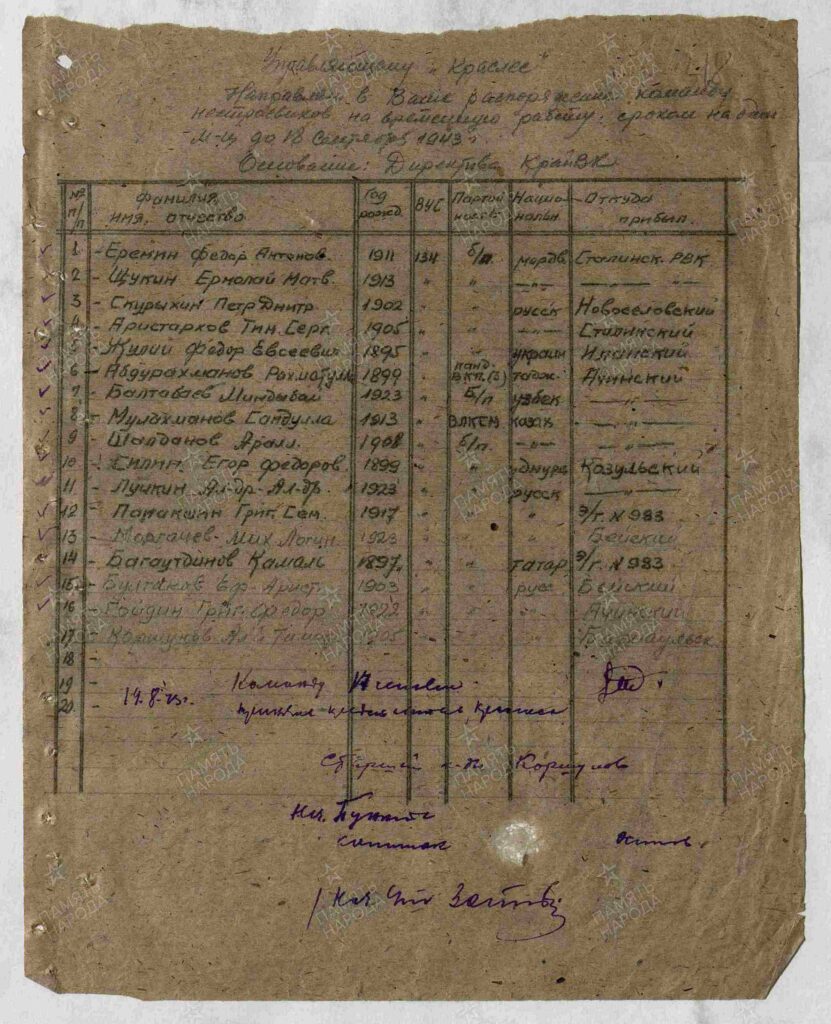 Управляющему „Краслес"
Направляем в Ваше распоряжение команду
нестроевиков на временную работу, сроком на один
м-ц до 18 сентября 1943 г.
Основание: Директива КрайВК
№ п/п фамилия, имя, отчество Год рожд. ВУС Партийность Национальн. Откуда прибыл.
1 - Еремин Федор Антонов. 1911 134 б/п. мордв. Сталинск. РВК
2 - Щукин Ермолай Матв. 1913 " " — " — — " —
3 - Скурыхин Петр Дмитр. 1902 " " русск Новоселовский
4 - Аристархов Тим. Серг. 1905 " " — " — Сталинский
5 - Жилий Федор Евсеевич 1895 " " украин Иланский
6 - Абдурахманов Рахматулл 1899 " канд. ВКП(б) тадж. Ачинский
7 - Балтабаев Миндыбай 1923 " б/п узбек — " —
8 - Мулахманов Сапдулла 1913 " ВЛКСМ казах — " —
9 - Шалданов Арали. 1908 " б/п. — " — — " —
10 - Силин Егор Федоров. 1899 " " Козульский
11 - Лучкин Ал-др. Ал-др. 1923 " " русск — " —
12 - Панакшин Григ. Сем. 1917 " " " Э/г. № 983
13 - Моргачев Мих Логин 1923 " " " Бейский
14 - Багаутдинов Камаль 1897 " " татар. Э/г. № 983
15 - Булгаков Еф. Арист. 1903 " " рус. Бейский
16 - Гойдин Григ. Федор 1922 " " " Ачинский
17 - Коршунов Ал-й Тимоф 1905 " "
18 -
19 Команду
20 19.8.43г.
Старший к-ды Коршунов
Нач. Пункта
капитан
Нач.